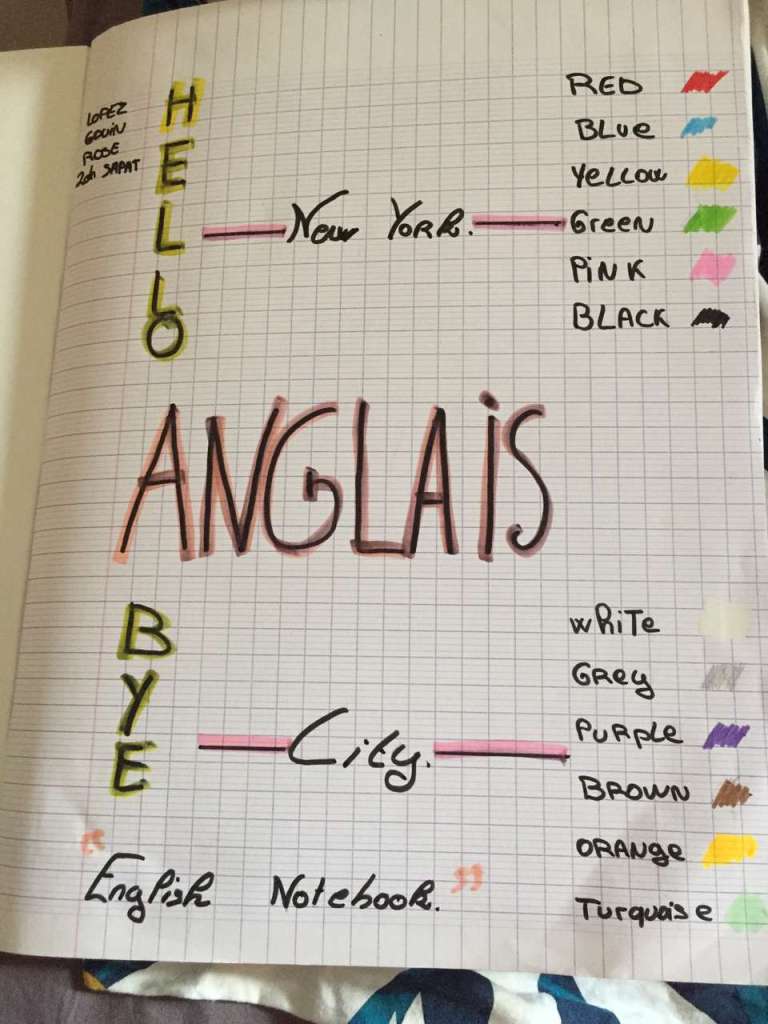 LOPEZ
GOUIN
ROSE
HELLO
New York.
RED
BLUe
YeLLOW
GReeN
PiNK
BLACK
ANGLAiS
BYE
City.
wHiTe
GRey
PuRPLe
BROWN
ORANge
Turquoise
"English Notebook."